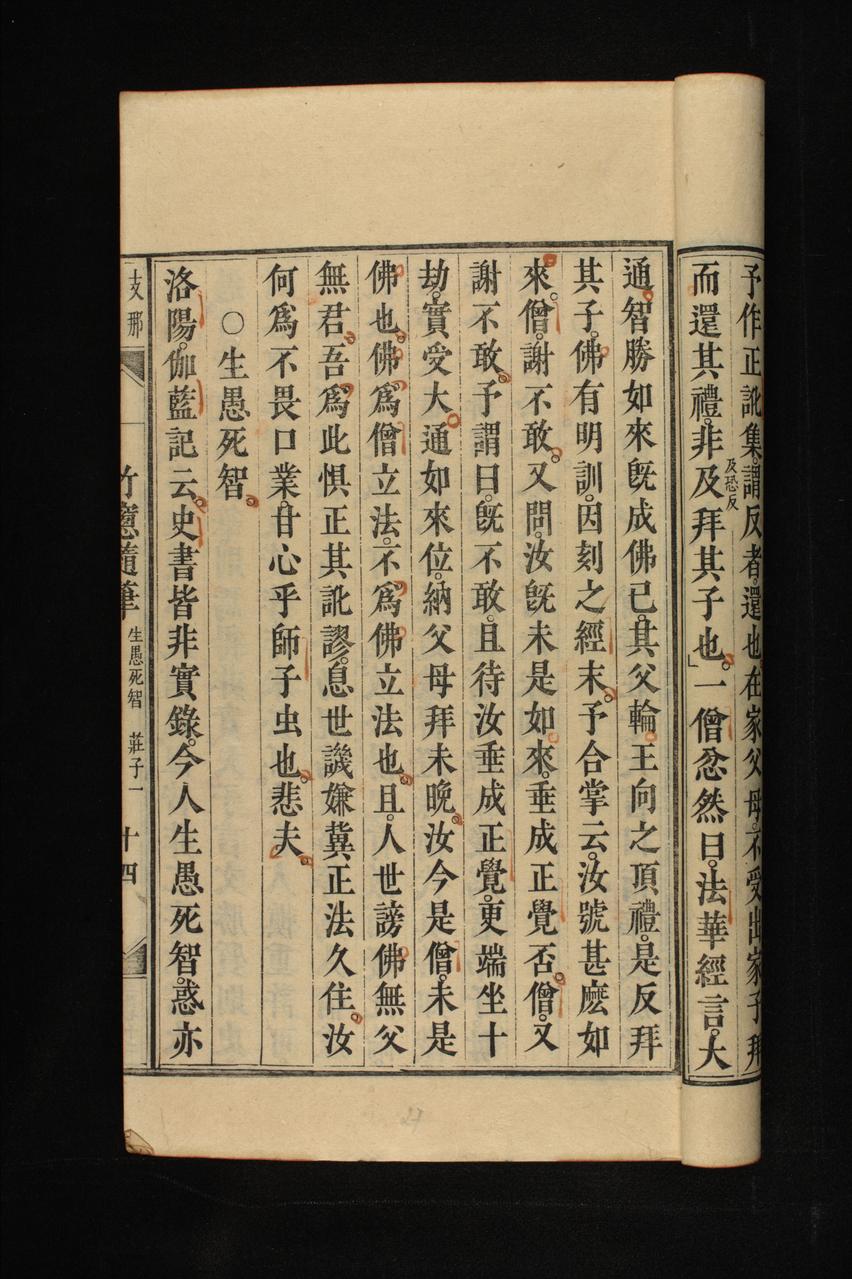 予作正訛集。謂反者。還也。在家父母。不受出家子拜
而還其禮。非及拜其子也。」一僧忿然曰。法華經言。大
及恐反
通。智勝如來旣成佛已。其父輪。王向之頂禮。是反拜
其子。佛有明訓。因刻之經末。予合掌云。汝號甚麽如
來。僧。謝不敢。又問。汝旣未是如。來。垂成正覺否。僧。又
謝不敢。予謂曰。旣不敢。且待汝垂成正覺。更端坐十
劫。實受大。通如來位。納父母拜未晚。汝今是僧。未是
佛也。佛爲僧立法。不爲佛立法也。且。人世謗佛無父
無君。吾爲此惧正其訛謬。息世譏嫌冀正法久住。汝
何爲不畏口業。甘心乎師子虫也。悲夫。
〇生愚死智。
洛陽。伽藍記云。史書皆非實錄。今人生愚死智。惑亦
支那
竹窻隨筆 生愚死智 莊子一 十四